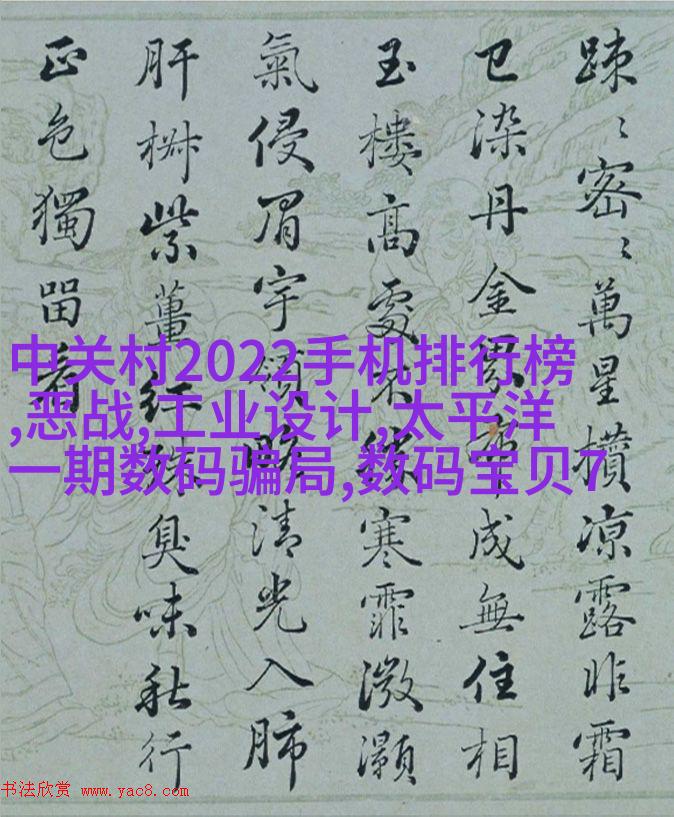 踈〻密〻萬星攢凉露昨霜
已染丹金成無住相
玉樓高處不寒霏微灝
氣侵眉宇領略清光入肺
肝紫薑紅臭味秋行
正色獨留看
中关村2022手机排行榜
,恶战,工业设计,太平洋
一期数码骗局,数码宝贝7
书法欣赏 www.yac8.com